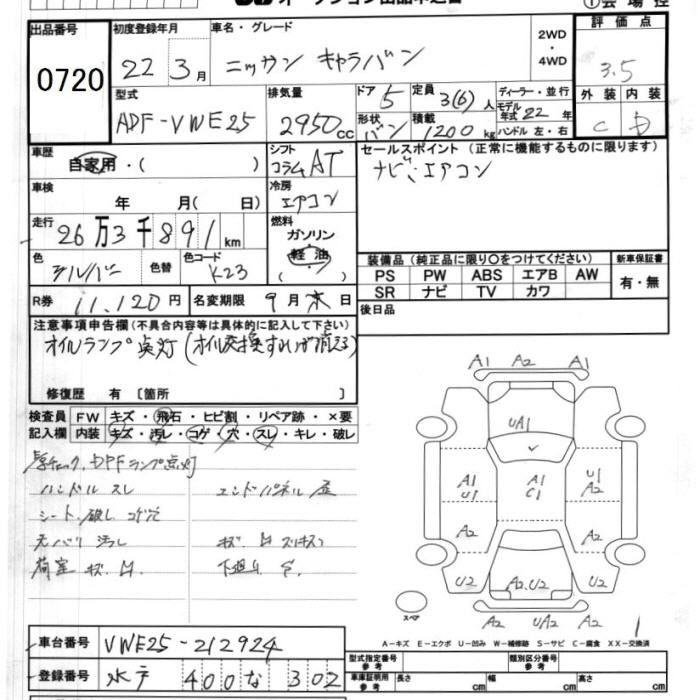 ①会場控
出品番号 0720
初度登録年月 22 3月
車名・グレード ニッサン キャラバン
2WD・4WD
評価点 3.5
型式 ADF-VWE25
排気量 2950cc
ドア 5
形状 バン
定員 3(6)人
積載 1200kg
ディーラー・並行
モデル年式 22年
ハンドル 左・右
外装 C
内装 D
車歴 自家用・( )
シフト コラムAT
セールスポイント (正常に機能するものに限ります)
ナビ、エアコン
車検 年 月( 日)
冷房 エアコン
走行 26万3千891km
燃料 ガソリン 軽油 ( ・ )
色 シルバー 色替
色コード K23
装備品 (純正品に限り○をつけてください)
PS PW ABS エアB AW
SR ナビ TV カワ
新車保証書 有・無
R券 11,120円
名変期限 9月末日
後日品
注意事項申告欄 (不具合内容等は具体的に記入して下さい)
オイルランプ点灯(オイル交換すれば消える)
修復歴 有 [箇所 ]
検査員記入欄
FW キズ・飛石・ヒビ割・リペア跡・×要
内装 キズ・汚レ・コゲ・穴・スレ・キレ・破レ
DPFランプ点灯
ハンドル スレ
エンドパネル 歪
シート、破レ コゲ穴
天バリ 汚レ
荷室 キズ、
下廻り S、
A1 A2 A1
UA1
A1
U1
A1
C1
U1
A2
A2
A2
U2
A2、U2
U2
A2 UA2 A2
スペア
1
A-キズ E-エクボ U-凹み W-補修跡 S-サビ C-腐食 XX-交換済
車台番号 VWE25-212924
登録番号 水戸 400 な 302
型式指定番号 参考
類別区分番号 参考
車庫証明用 参考 長さ cm 幅 cm 高さ cm